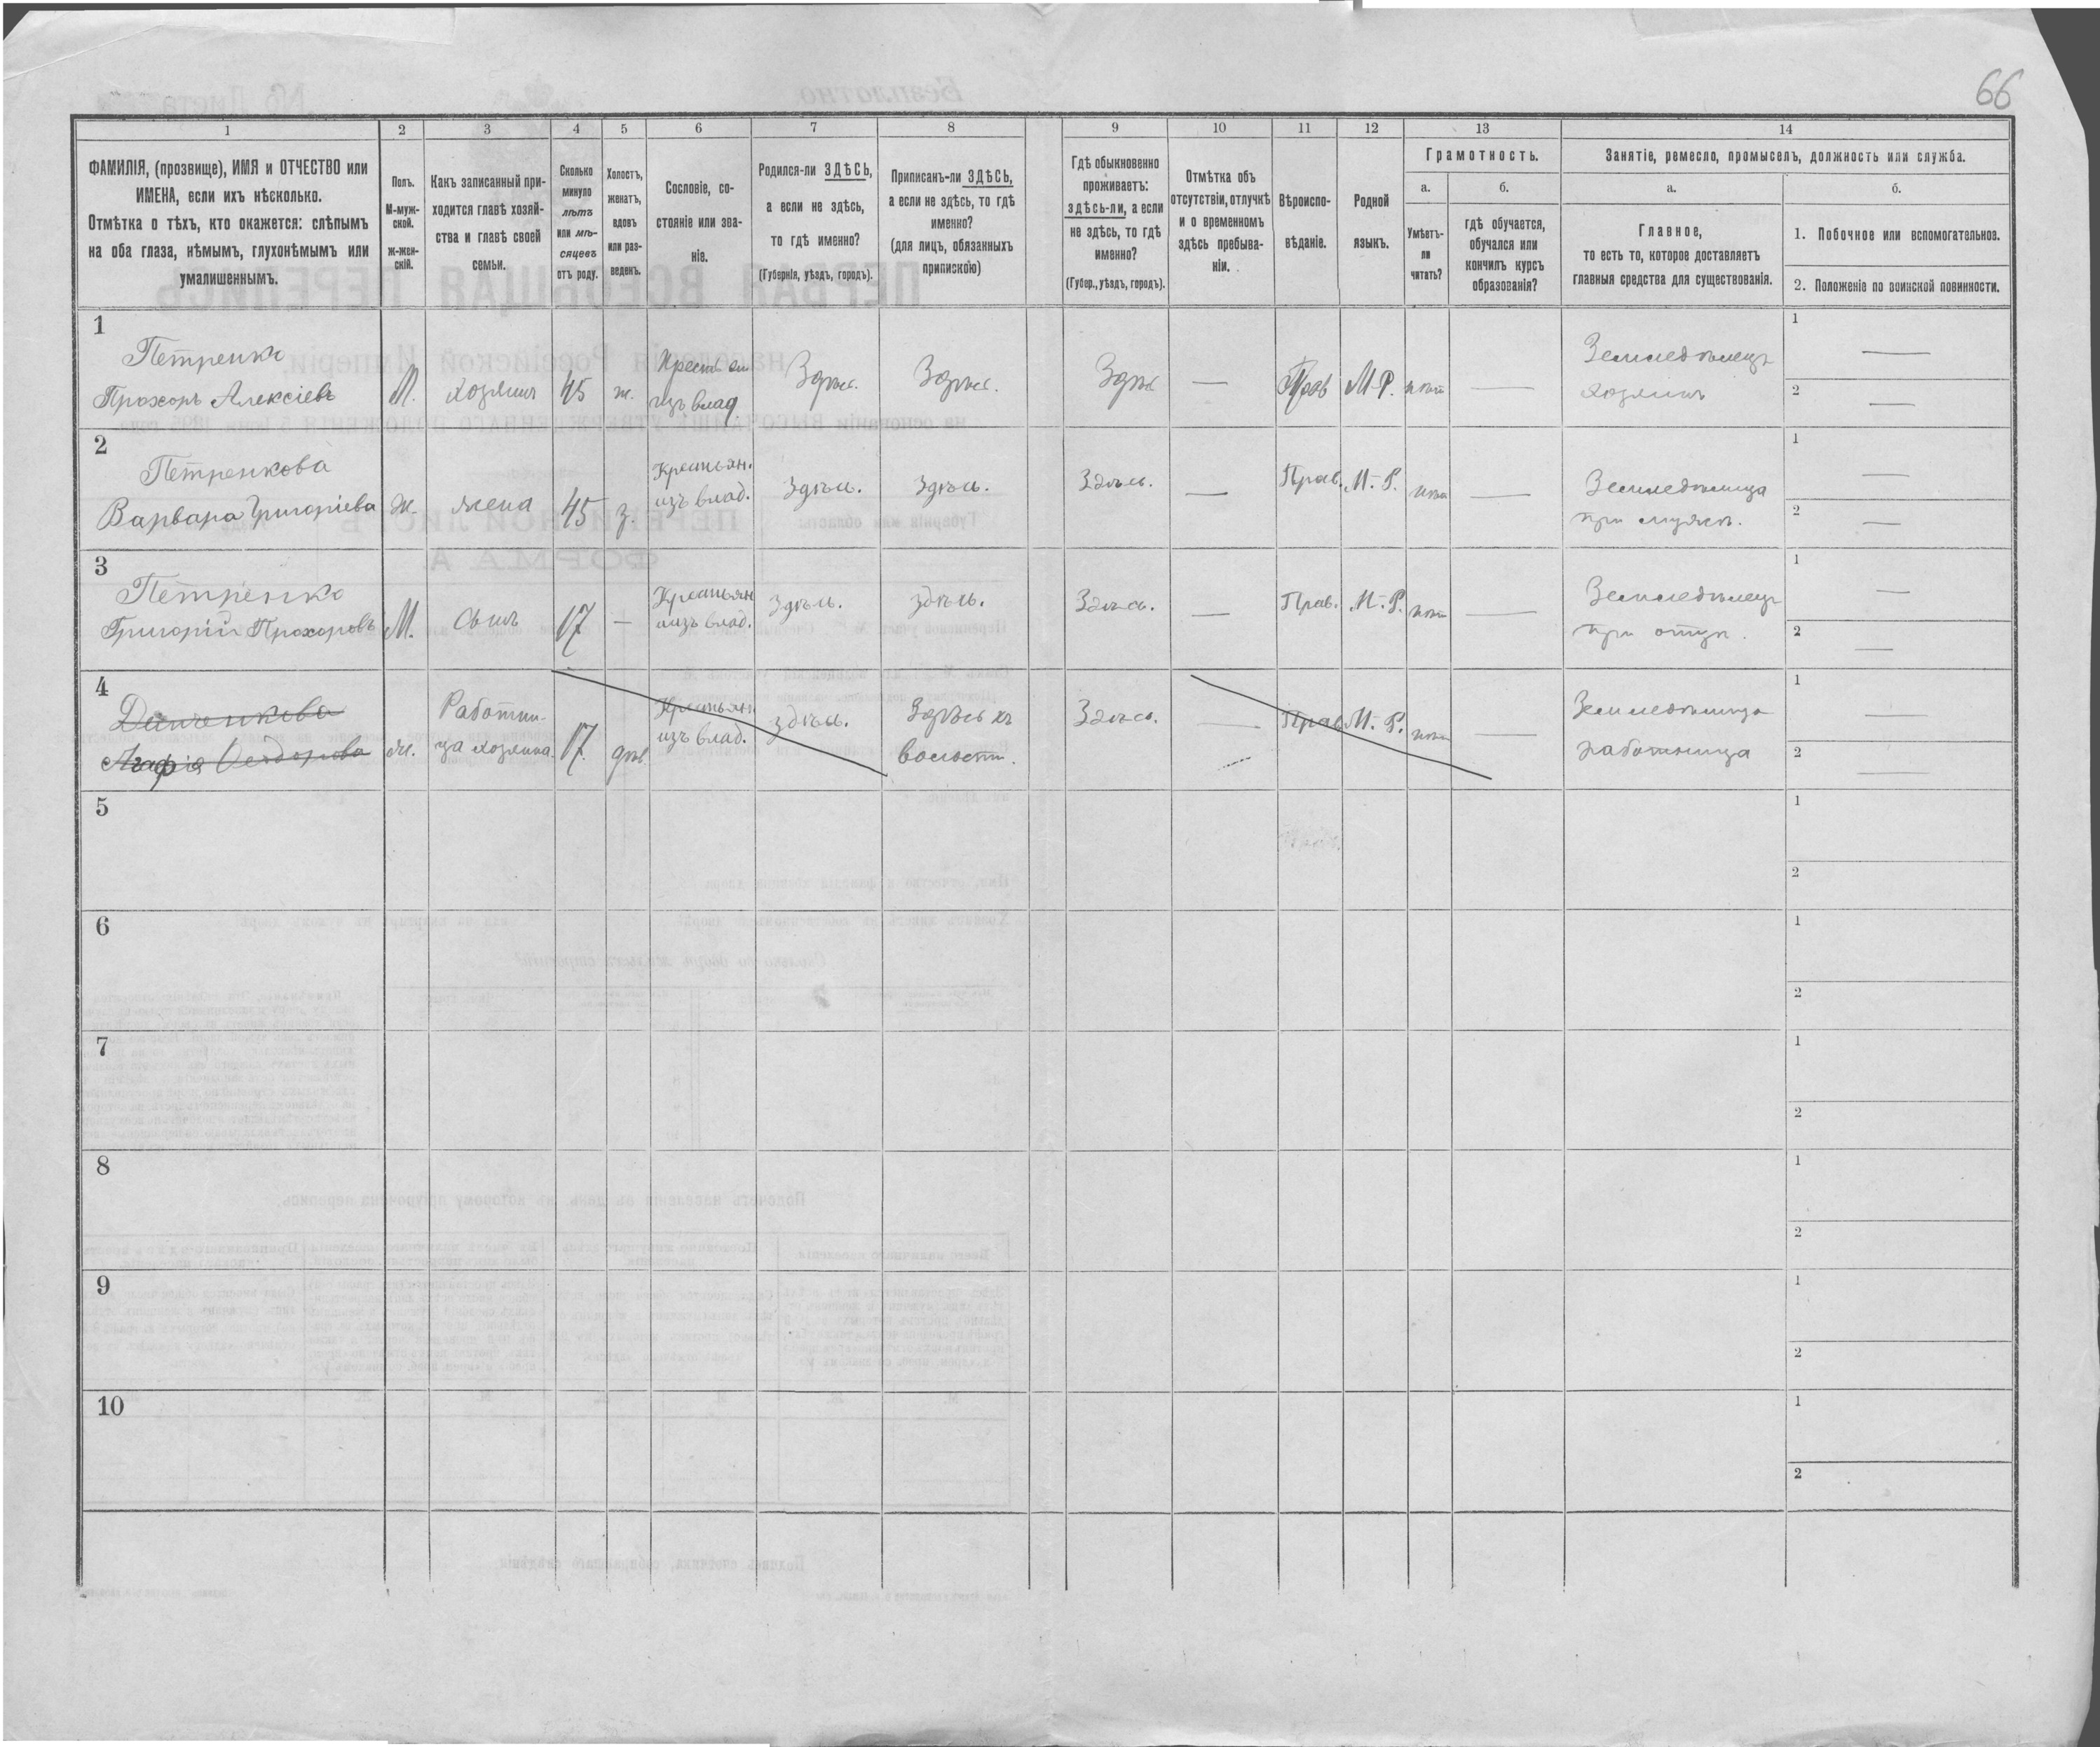 66
1 2 3 4 5 6 7 8 9 10 11 12 13 14
ФАМИЛІЯ, (прозвище), ИМЯ и ОТЧЕСТВО или
ИМЕНА, если ихъ нѣсколько.
Отмѣтка о тѣхъ, кто окажется: слѣпымъ
на оба глаза, нѣмымъ, глухонѣмымъ или
умалишеннымъ.
Полъ.
М-муж-
ской.
ж-жен-
скій.
Какъ записанный при-
ходится главѣ хозяй-
ства и главѣ своей
семьи.
Сколько
минуло
лѣтъ
или мѣ-
сяцевъ
отъ роду.
Холостъ,
женатъ,
вдовъ
или раз-
веденъ.
Сословіе, со-
стояніе или зва-
ніе.
Родился-ли ЗДѢСЬ,
а если не здѣсь,
то гдѣ именно?
(Губернія, уѣздъ, городъ).
Приписанъ-ли ЗДѢСЬ,
а если не здѣсь, то гдѣ
именно?
(для лицъ, обязанныхъ
припискою)
Гдѣ обыкновенно
проживаетъ:
здѣсь-ли, а если
не здѣсь, то гдѣ
именно?
(Губер., уѣздъ, городъ).
Отмѣтка объ
отсутствіи, отлучкѣ
и о временномъ
здѣсь пребыва-
ніи.
Вѣроиспо-
вѣданіе.
Родной
языкъ.
Грамотность.
а.
Умѣетъ-
ли
читать?
б.
гдѣ обучается,
обучался или
кончилъ курсъ
образованія?
Занятіе, ремесло, промыселъ, должность или служба.
а.
Главное,
то есть то, которое доставляетъ
главныя средства для существованія.
б.
1. Побочное или вспомогательное.
2. Положеніе по воинской повинности.
1
Петренко
Прохоръ Алексіевъ
М.
хозяинъ
45
ж.
Крестьян
изъ влад.
Здѣсь.
Здѣсь.
Здѣсь
—
Прав
М-Р.
нѣт
—
Земледѣлецъ
хозяинъ
1 —
2 —
2
Петренкова
Варвара Григоріева
ж.
жена
45
з.
Крестьян.
изъ влад.
Здѣсь.
Здѣсь.
Здѣсь.
—
Прав.
М.-Р.
нѣт
—
Земледѣлица
при мужѣ.
1 —
2 —
3
Петренко
Григорій Прохоровъ
М.
Сынъ
17
—
Крестьян
изъ влад.
Здѣсь.
Здѣсь.
Здѣсь.
—
Прав.
М.-Р.
нѣт
—
Земледѣлецъ
при отцѣ.
1 —
2 —
4
Агафія Ѳеодорова
ж.
Работни-
ца хозяина.
17.
дѣв.
Крестьян
изъ влад.
Здѣсь.
Здѣсь къ
волости.
Здѣсь.
—
Прав
М.-Р.
нѣт
—
Земледѣлица
работница
1 —
2 —
5
1
2
6
1
2
7
1
2
8
1
2
9
1
2
10
1
2